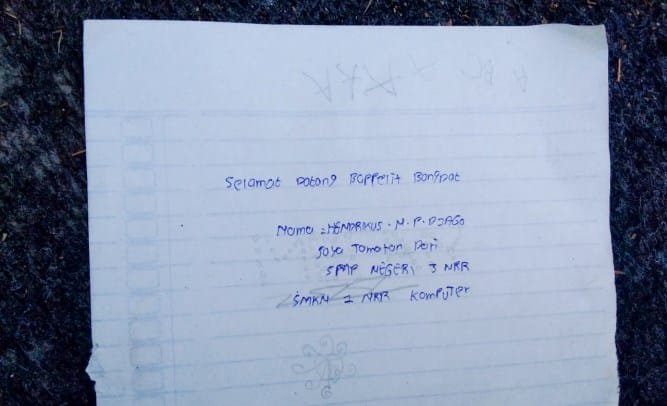 Selamat Datang Bappelit Bangdat
Nama : HENDRIKUS . M . P . DJAGO
Saya Tamatan Dari
SMP NEGERI 3 NRR
SMKN 1 NRR Komputer